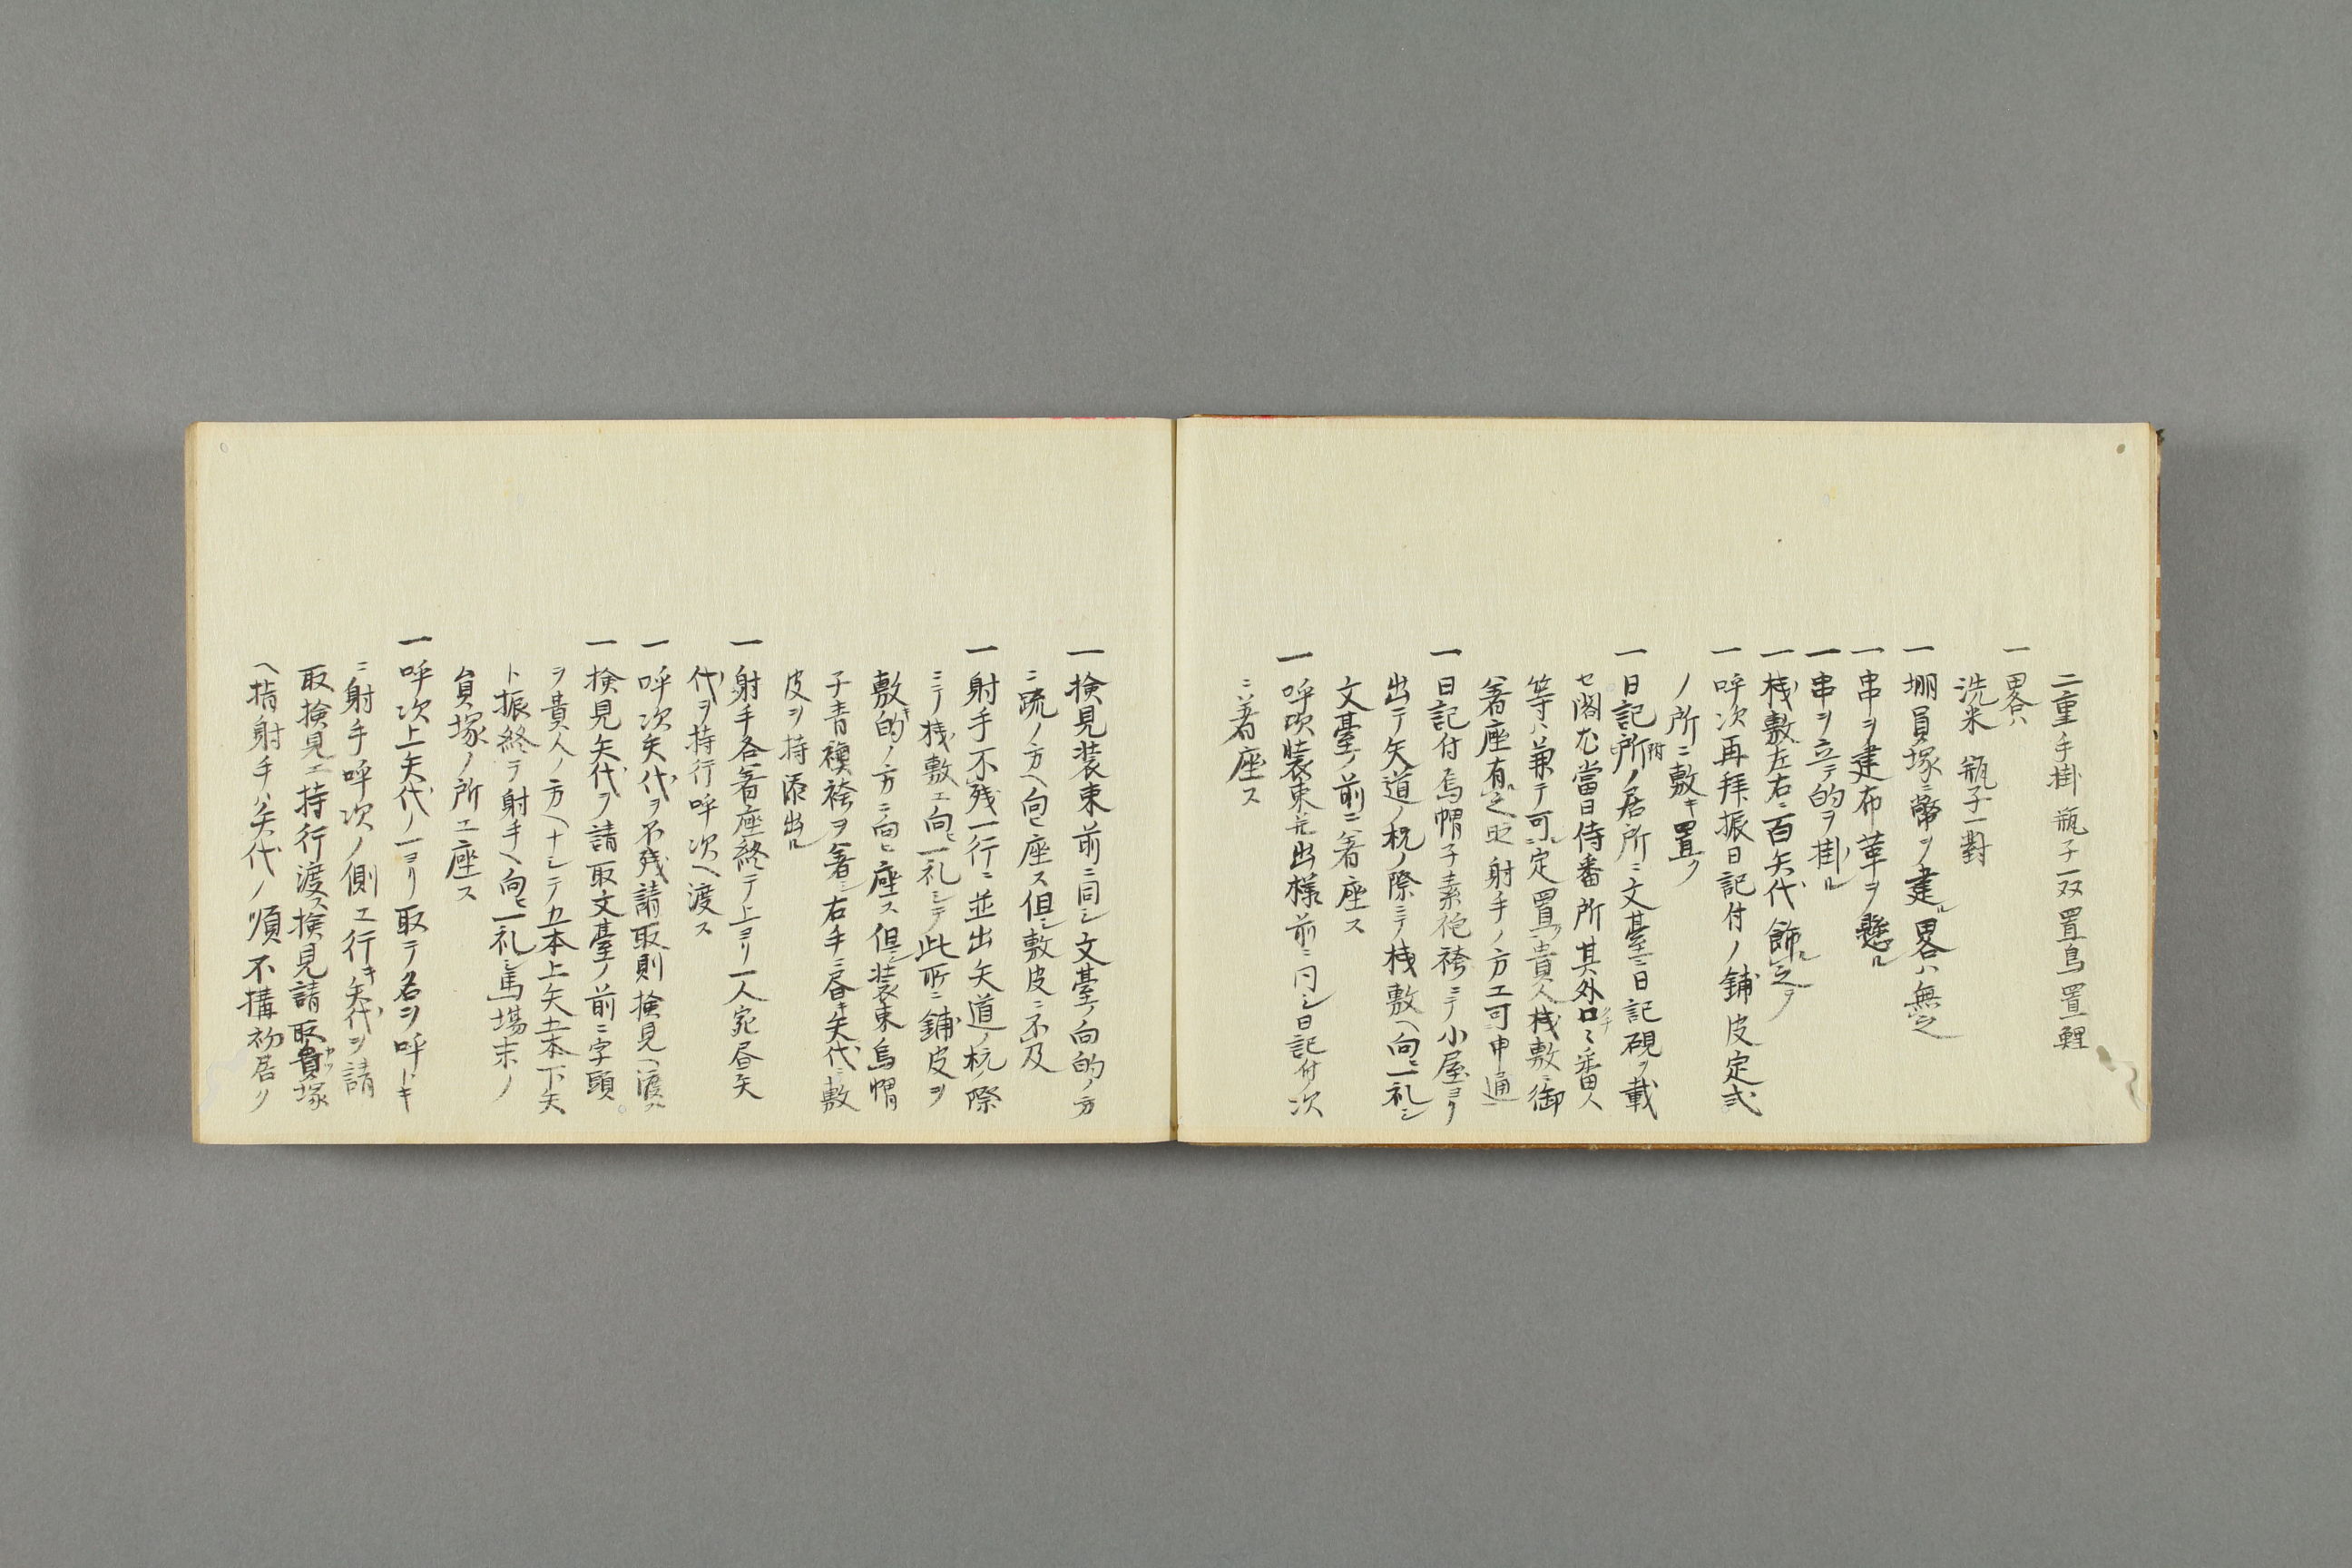 二重手掛 瓶子一双置鳥置鯉
一畧ハ
洗米 瓶子一對
一堋員塚ニ幣ヲ建ル畧ハ無之
一串ヲ建布革ヲ懸ル
一串ヲ立テ的ヲ掛ル
一桟敷左右ニ百矢代飾ル之ヲ
一呼次再拝振日記付ノ鋪皮定式
ノ所ニ敷キ置ク
一日記附所ノ居所ニ文臺ニ日記硯ヲ載
セ閣尤當日侍番所其外口クチ々番人
等ハ兼テ可定置貴人桟敷ニ御
着座有之ハ射手ノ方エ可申通
一日記付烏帽子素袍袴ニテ小屋ヨリ
出テ矢道ノ杭ノ際ニテ桟敷ヘ向ヒ一礼シ
文臺ノ前ニ着座ス
一呼次装束並出様前ニ同シ日記付次
ニ着座ス
一検見装束前ニ同シ文臺ノ向的ノ方
ニ疏ノ方ヘ向ヒ座ス但シ敷皮ニ不及
一射手不残一行ニ並出矢道ノ杭ノ際
ニテ桟敷エ向ヒ一礼シテ此所ニ鋪皮ヲ
敷キ的ノ方ニ向ヒ座ス但シ装束烏帽
子青襖袴ヲ着シ右手ニ昼キ矢代ニ敷
皮ヲ持添出ル
一射手各着座終テ上ヨリ一人宛昼矢
代ヲ持行呼次ヘ渡ス
一呼次矢代ヲ不残請取則検見ヘ渡ス
一検見矢代ヲ請取文臺ノ前ニ字頭
ヲ貴人ノ方ヘナシテ五本上矢五本下矢
ト振終テ射手ヘ向ヒ一礼シ馬場末ノ
員塚ノ所エ座ス
一呼次上矢代ノ一ヨリ取テ名ヲ呼トキ
ニ射手呼次ノ側エ行キ矢代ヲ請
取検見エ持行渡ス検見請取員カツ塚
ヘ指射手ハ矢代ノ順不構初居リ